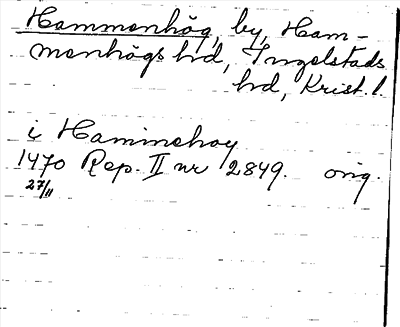 Hammenhög, by, Ham-
menhögs hd, Ingelstads
hd, Krist. l.
i Haminehoy
1470 Rep. II nr 2849. orig.
27/11